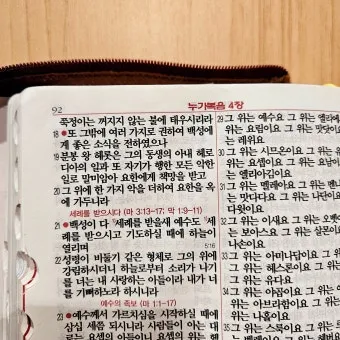 92 누가복음 4장
쭉정이는 꺼지지 않는 불에 태우시리라
18 ●또 그밖에 여러 가지로 권하여 백성에
게 좋은 소식을 전하였으나
19 분봉 왕 헤롯은 그의 동생의 아내 헤로
디아의 일과 또 자기가 행한 모든 악한
일로 말미암아 요한에게 책망을 받고
20 그 위에 한 가지 악을 더하여 요한을 옥
에 가두니라
세례를 받으시다 (마 3:13-17; 막 1:9-11)
21 ●백성이 다 세례를 받을새 예수도 세
례를 받으시고 기도하실 때에 하늘이
열리며 5:16
22 성령이 비둘기 같은 형체로 그의 위에
강림하시더니 하늘로부터 소리가 나기
를 너는 내 사랑하는 아들이라 내가 너
를 기뻐하노라 하시니라
예수의 족보 (마 1:1-17)
23 ●예수께서 가르치심을 시작하실 때에
삼십 세쯤 되시니라 사람들이 아는 대
로는 요셉의 아들이니 요셉의 위는
29 그 위는 예수요 그 위는
위는 요림이요 그 위는
는 레위요
30 그 위는 시므온이요 그 위는
위는 요셉이요 그 위는
는 엘리아김이요
31 그 위는 멜레아요 그 위는
는 맛다다요 그 위는
다윗이요
32 그 위는 이새요 그 위는
는 보아스요 그 위는
나손이요
33 그 위는 아미나답이요 그
는 헤스론이요 그 위는
위는 유다요
34 그 위는 야곱이요 그 위는
위는 아브라함이요 그 위
위는 나홀이요
35 그 위는 스룩이요 그 위는